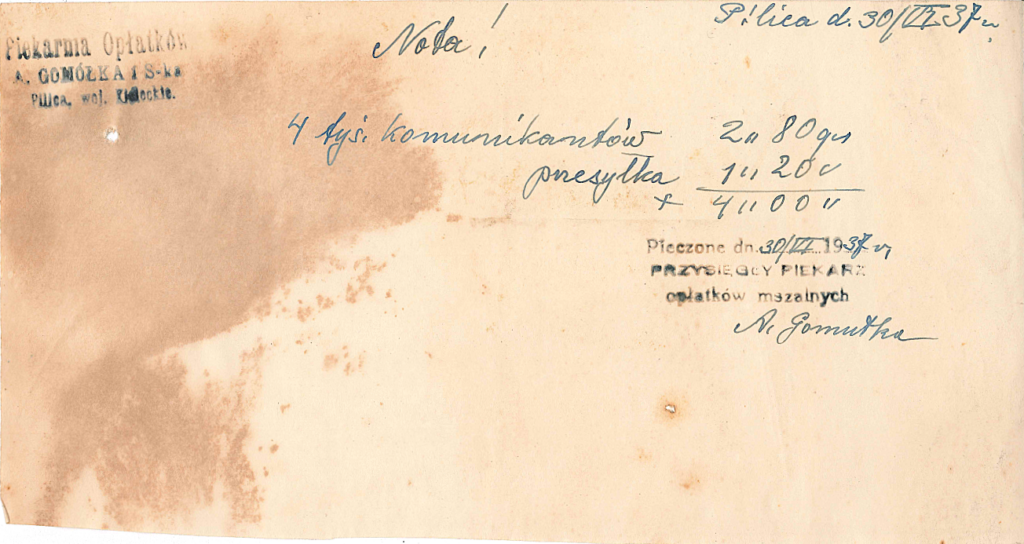 Piekarnia Opłatków
A. GOMÓŁKA i S-ka
Pilica, woj. Kieleckie.
Pilica d. 30/VI 37 r.
Nota!
4 tyś. komunikantów 2 " 80 grs
przesyłka 1 " 20 "
+ 4 " 00 "
Pieczone dn. 30/VI 1937 r,
PRZYSIĘGŁY PIEKARZ
opłatków mszalnych
A. Gomułka